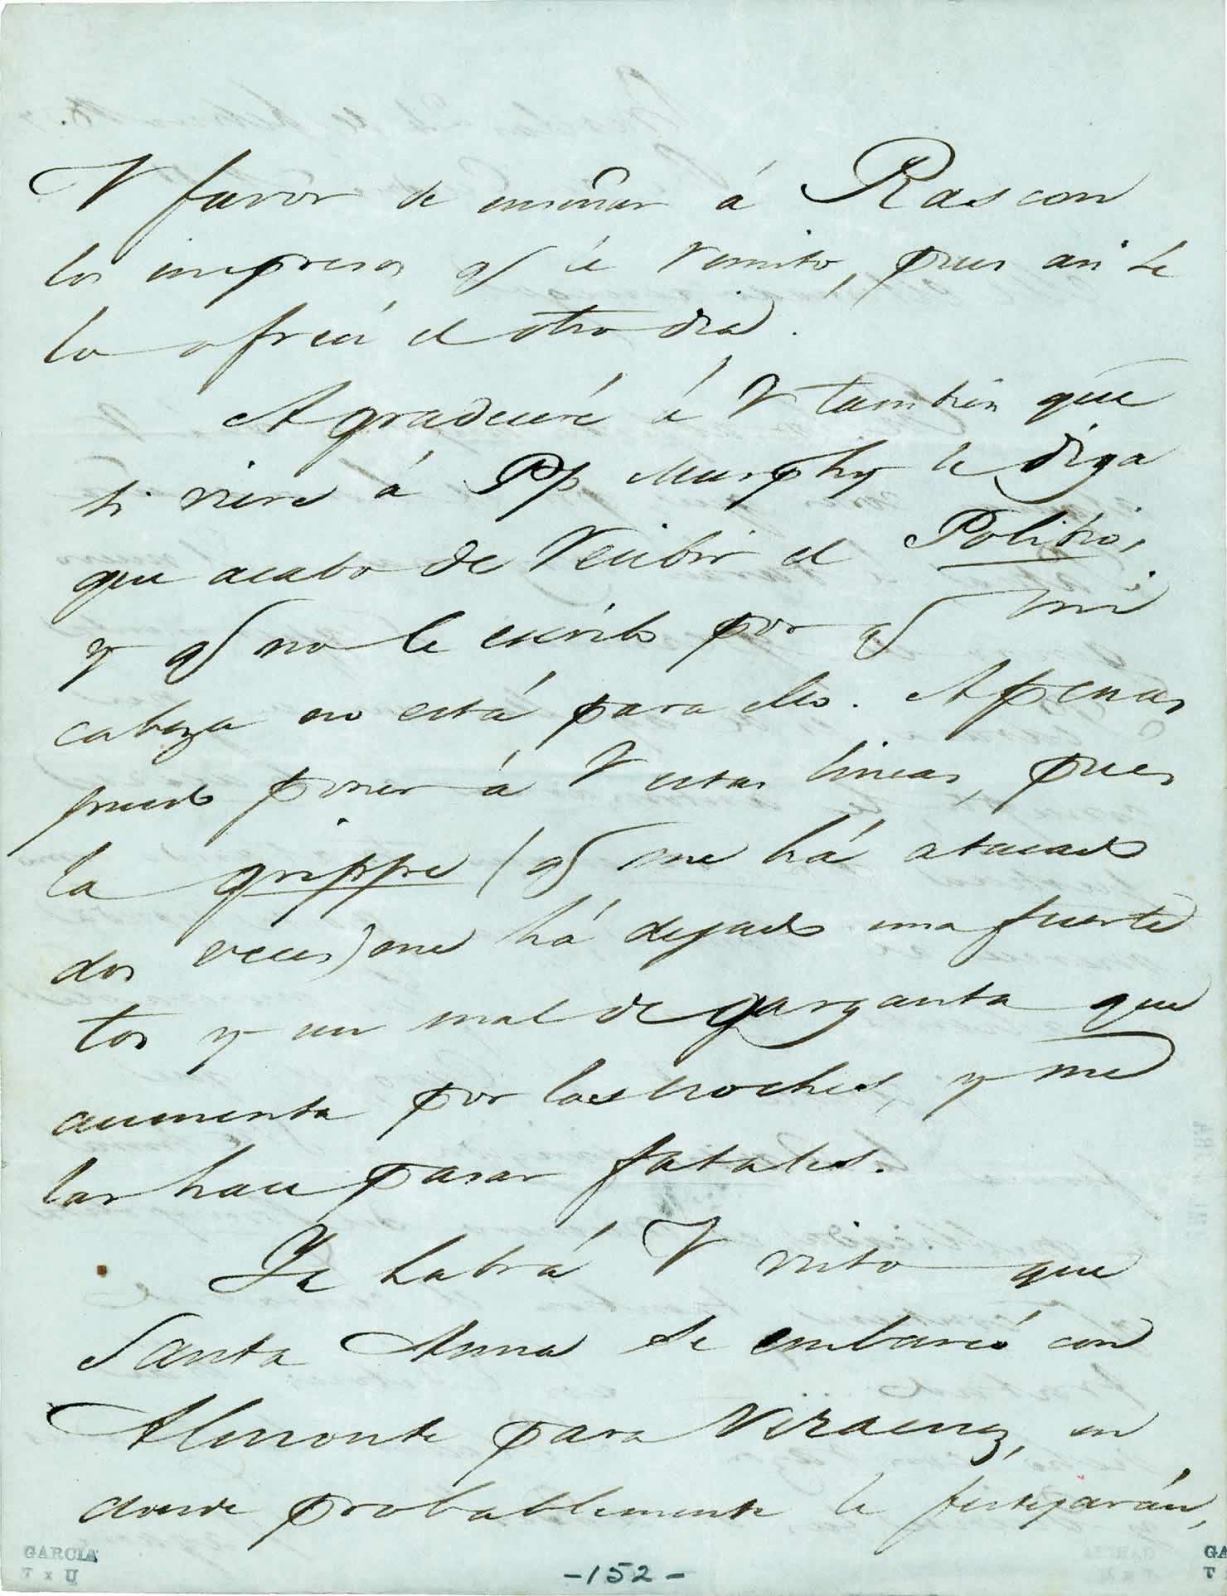 V favor de enseñar á Rascon
los impresos q̃ le remito, pues asi se
lo ofrecí el otro dia.
Agradeceré á V tambien que
si viere á Pp Murphy le diga
que acabo de recibir el Polibio,
y q̃ no le escribo por q̃ mi
cabeza no está para ello. Apenas
puedo poner á V estas lineas, pues
la grippe (q̃ me há atacado
dos veces) me há dejado una fuerte
tos y un mal de garganta que
aumenta por las noches, y me
las hace pasar fatales.
Ya habrá V visto que
Santa Anna se embarcó con
Almonte para Veracruz, en
donde probablemente le festejarán,
GARCIA
T x U
-152-
GA
T